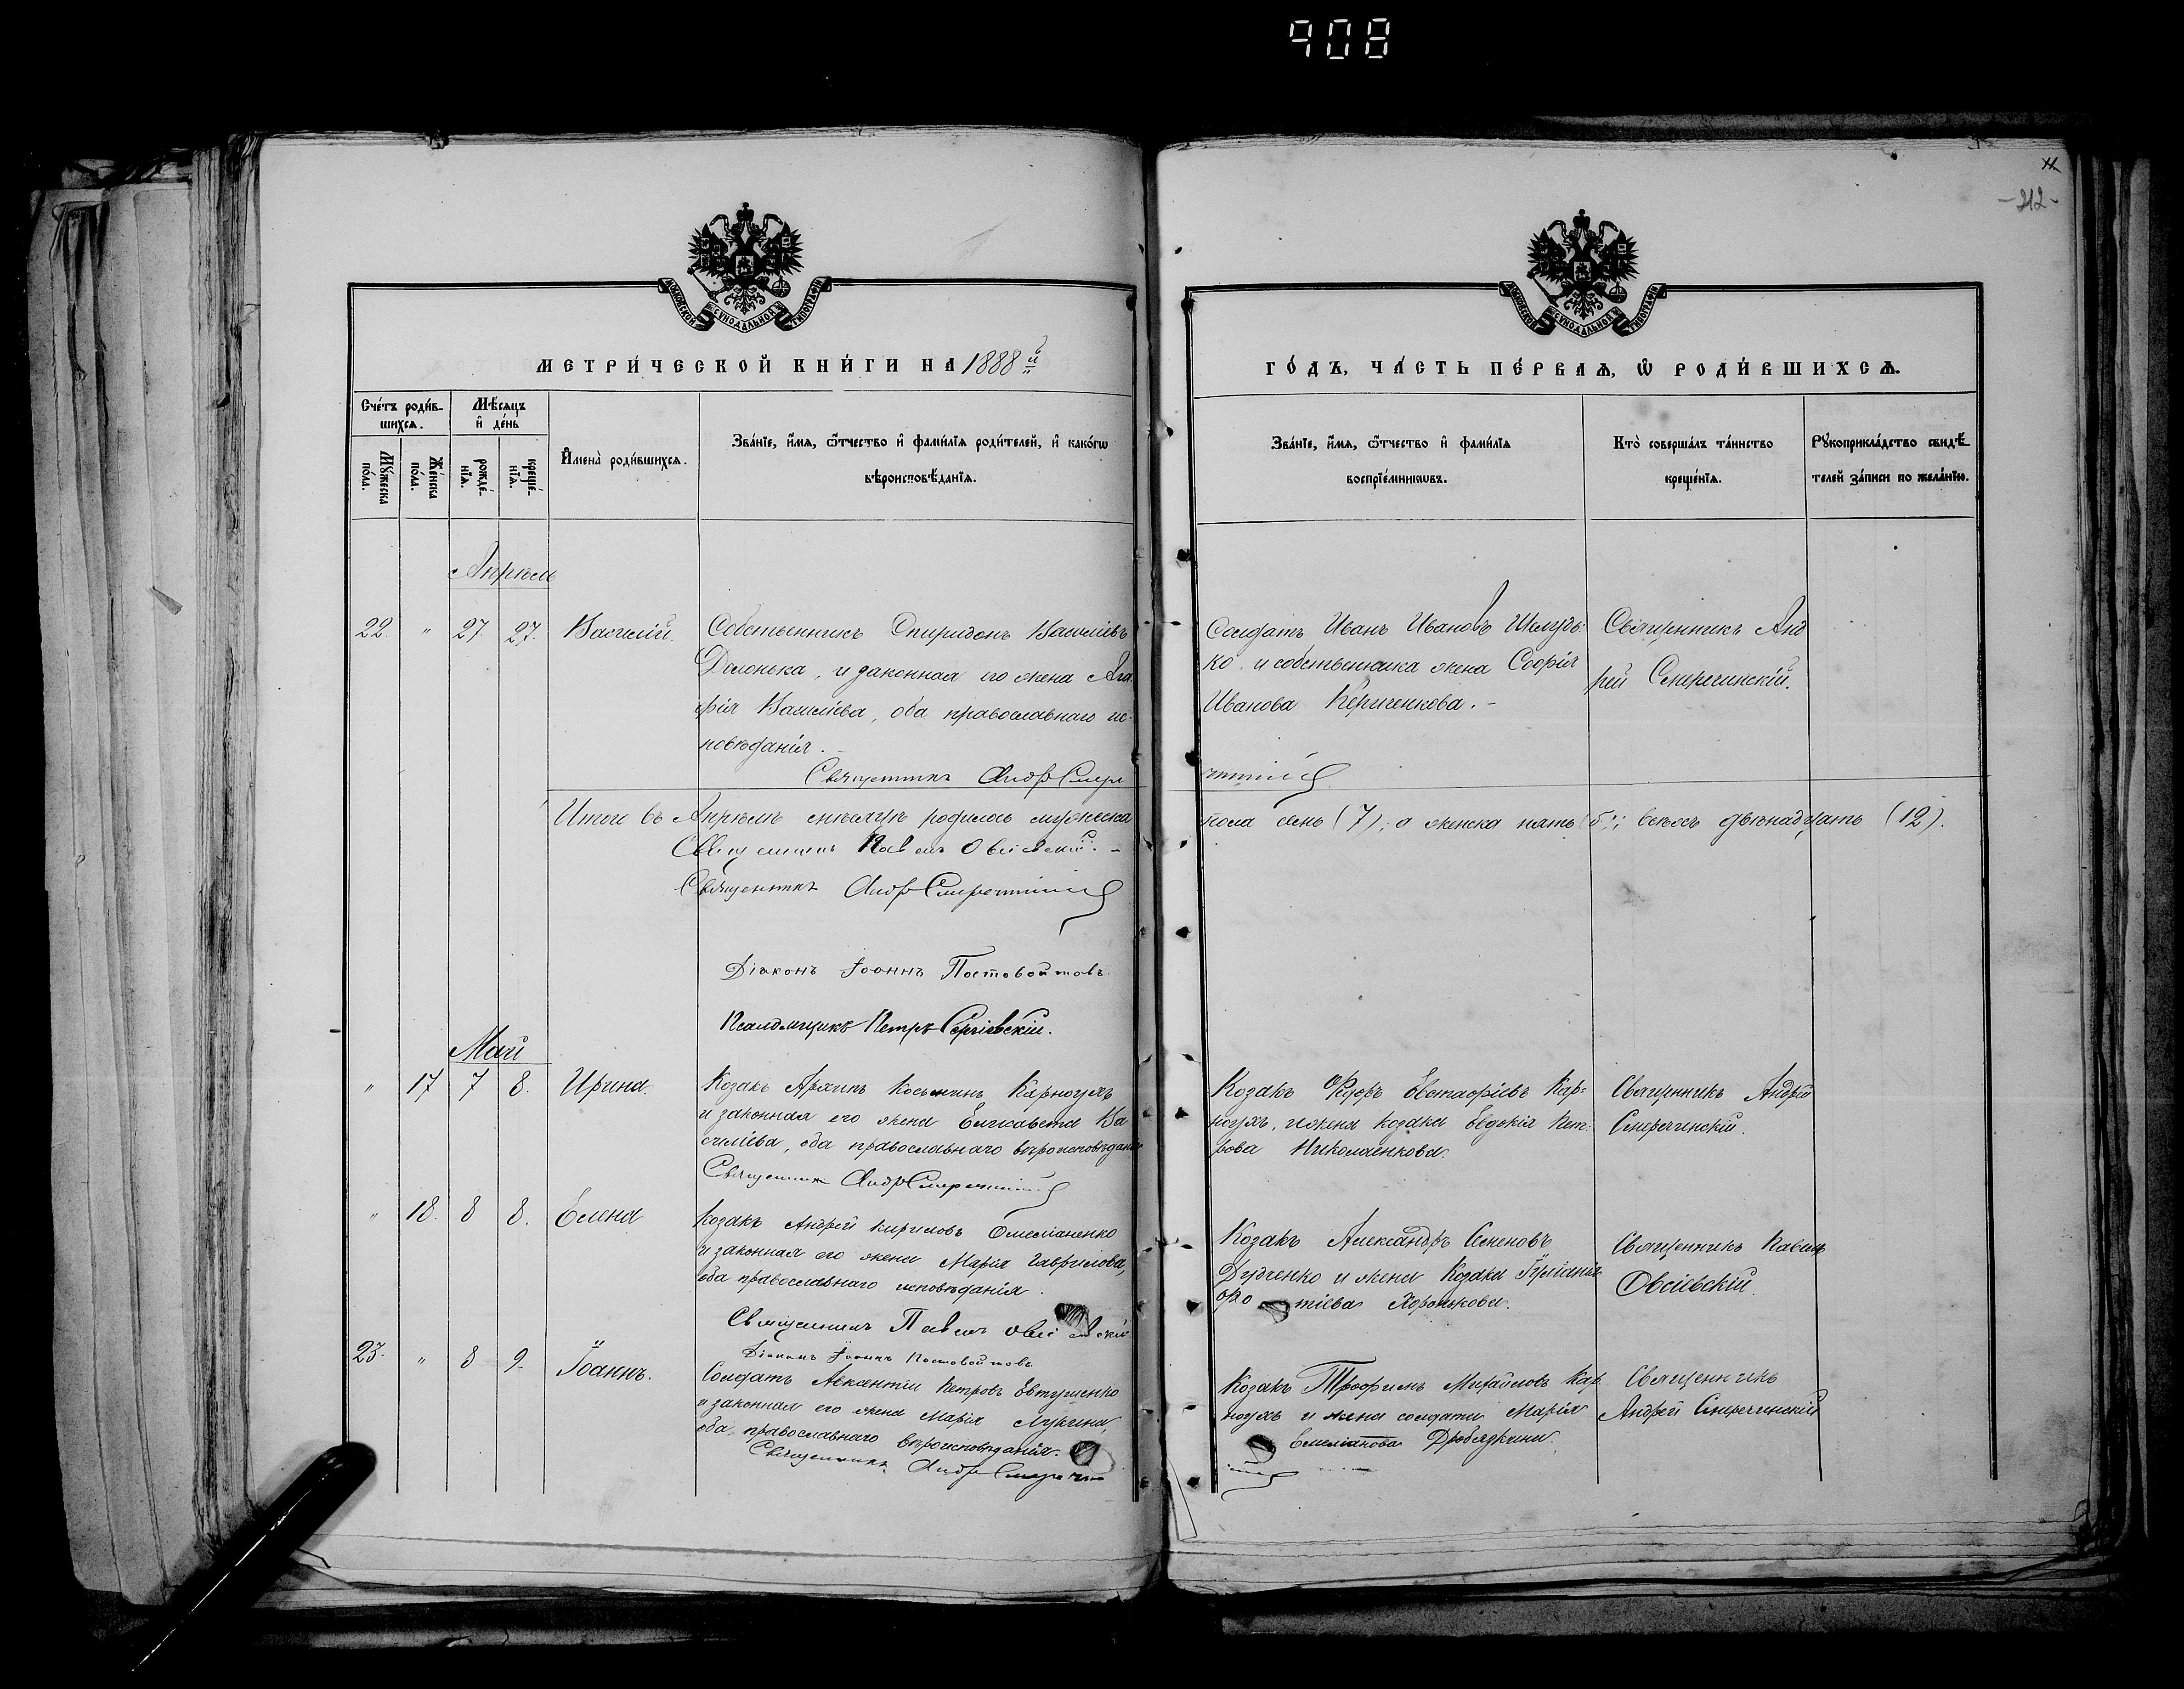 908
11
-212-
МОСКОВСКОЙ СѴНОДАЛЬНОЙ ТИПОГРАФІИ
МОСКОВСКОЙ СѴНОДАЛЬНОЙ ТИПОГРАФІИ
МЕТРИ́ЧЕСКОЙ КНИ́ГИ НА 1888й
ГО́ДЪ, ЧА́СТЬ ПЕ́РВАѦ, Ѿ РОДИ́ВШИХСѦ.
Сче́тъ роди́в-
шихсѧ.
Мѣ́сѧцъ
и҆ де́нь
Мꙋ́жеска
по́ла.
Же́нска
по́ла.
рожде́-
нїѧ.
креще́-
нїѧ.
И҆мена̀ роди́вшихсѧ.
Зва́нїе, и҆́мѧ, ѻ҆́тчество и҆ фами́лїѧ роди́телей, и҆ како́гѡ
вѣроисповѣ́данїѧ.
Зва́нїе, и҆́мѧ, ѻ҆́тчество и҆ фами́лїѧ
воспрїе́мникѡвъ.
Кто̀ соверша́лъ та́инство
креще́нїѧ.
Рꙋкоприкла́дство свидѣ́-
телей за́писи по жела́нїю.
Апрѣль
22. " 27 27. Василій.
Собственникъ Спиридонъ Василіевъ
и законная его жена Ага
фія Василіева, оба православнаго ис-
повѣданія.
Священникъ Андр
Солдатъ Иванъ Ивановъ
ко и собственника жена Софія
Иванова
Священникъ Анд
рей Смеречинскій.
Итого въ Апрѣлѣ мѣсяцѣ родилось мужеска
пола семь (7), а женска пять (5); всѣхъ двѣнадцать (12).
Священникъ Павелъ Овсіевскій.
Священникъ Андр Смеречинскій
Діаконъ Іоаннъ Постовойтовъ.
Псаломщикъ Петръ Сергіевскій.
Май
" 17 7 8. Ирина.
Козакъ Архипъ Косминъ Карнаухъ
и законная его жена Елисавета Ва
силіева, оба православнаго вѣроисповѣданія
Священникъ Андр Смеречинскій
Козакъ Ѳедоръ Евстафіевъ Кар-
наухъ, и жена козака Евдокія Пет-
рова Николаенкова.
Священникъ Андрей
Смеречинскій.
" 18. 8 8. Елена
Козакъ Андрей Кириловъ Омеліаненко
и законная его жена Марія Гаврилова,
оба православнаго исповѣданія.
Священникъ Павелъ Овсіевскій
Діаконъ Іоаннъ Постовойтовъ
Козакъ Александръ Семеновъ
Дудченко и жена Козака Іуліанія
Хоронькова.
Священникъ Павелъ
Овсіевскій.
23. " 8 9. Іоаннъ.
Солдатъ Авксентій Петровъ Евтушенко
и законная его жена Марія Лукина,
оба православнаго вѣроисповѣданія.
Священникъ Андр Смеречин
Козакъ Трофимъ Михайловъ Кар-
наухъ и жена солдата Марія
Емеліанова Дробязкина.
Священникъ
Андрей Смеречинскій